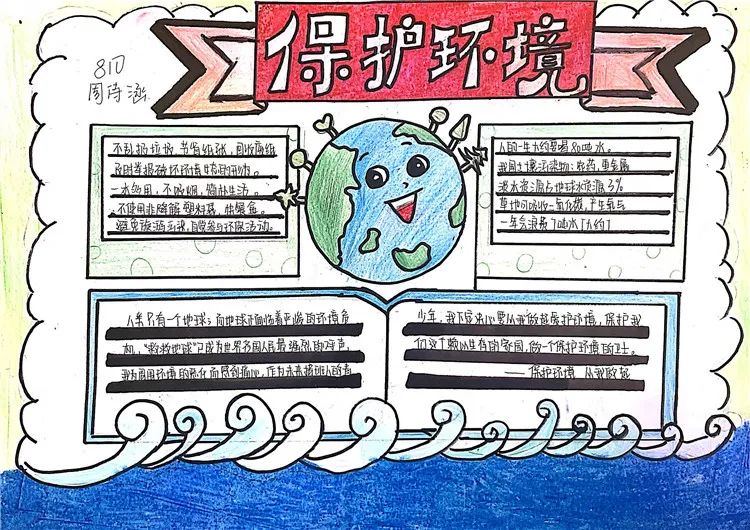 保护环境
810
周诗涵
不乱扔垃圾,节省纸张,回收废纸
及时举报破坏环境
一水多用,不吸烟,简朴生活。
不使用非降解塑料袋,快餐盒。
避免旅游污染,自觉参与环保活动。
人的一生大约要喝80吨水。
我国土壤污染物:农药,重金属
淡水资源占地球水资源3%
草地可吸收二氧化碳,产生氧气
一年会浪费7吨水(大约)
人类只有一个地球;而地球正面临着严峻的环境危
机,“救救地球”已成为世界各国人民最强烈的呼声,
我为周围环境的恶化而感到痛心,作为未来接班人的青
少年,我下定决心要从我做起爱护环境,保护我
们这个赖以生存的家园,做一个保护环境的卫士。
——保护环境 从我做起